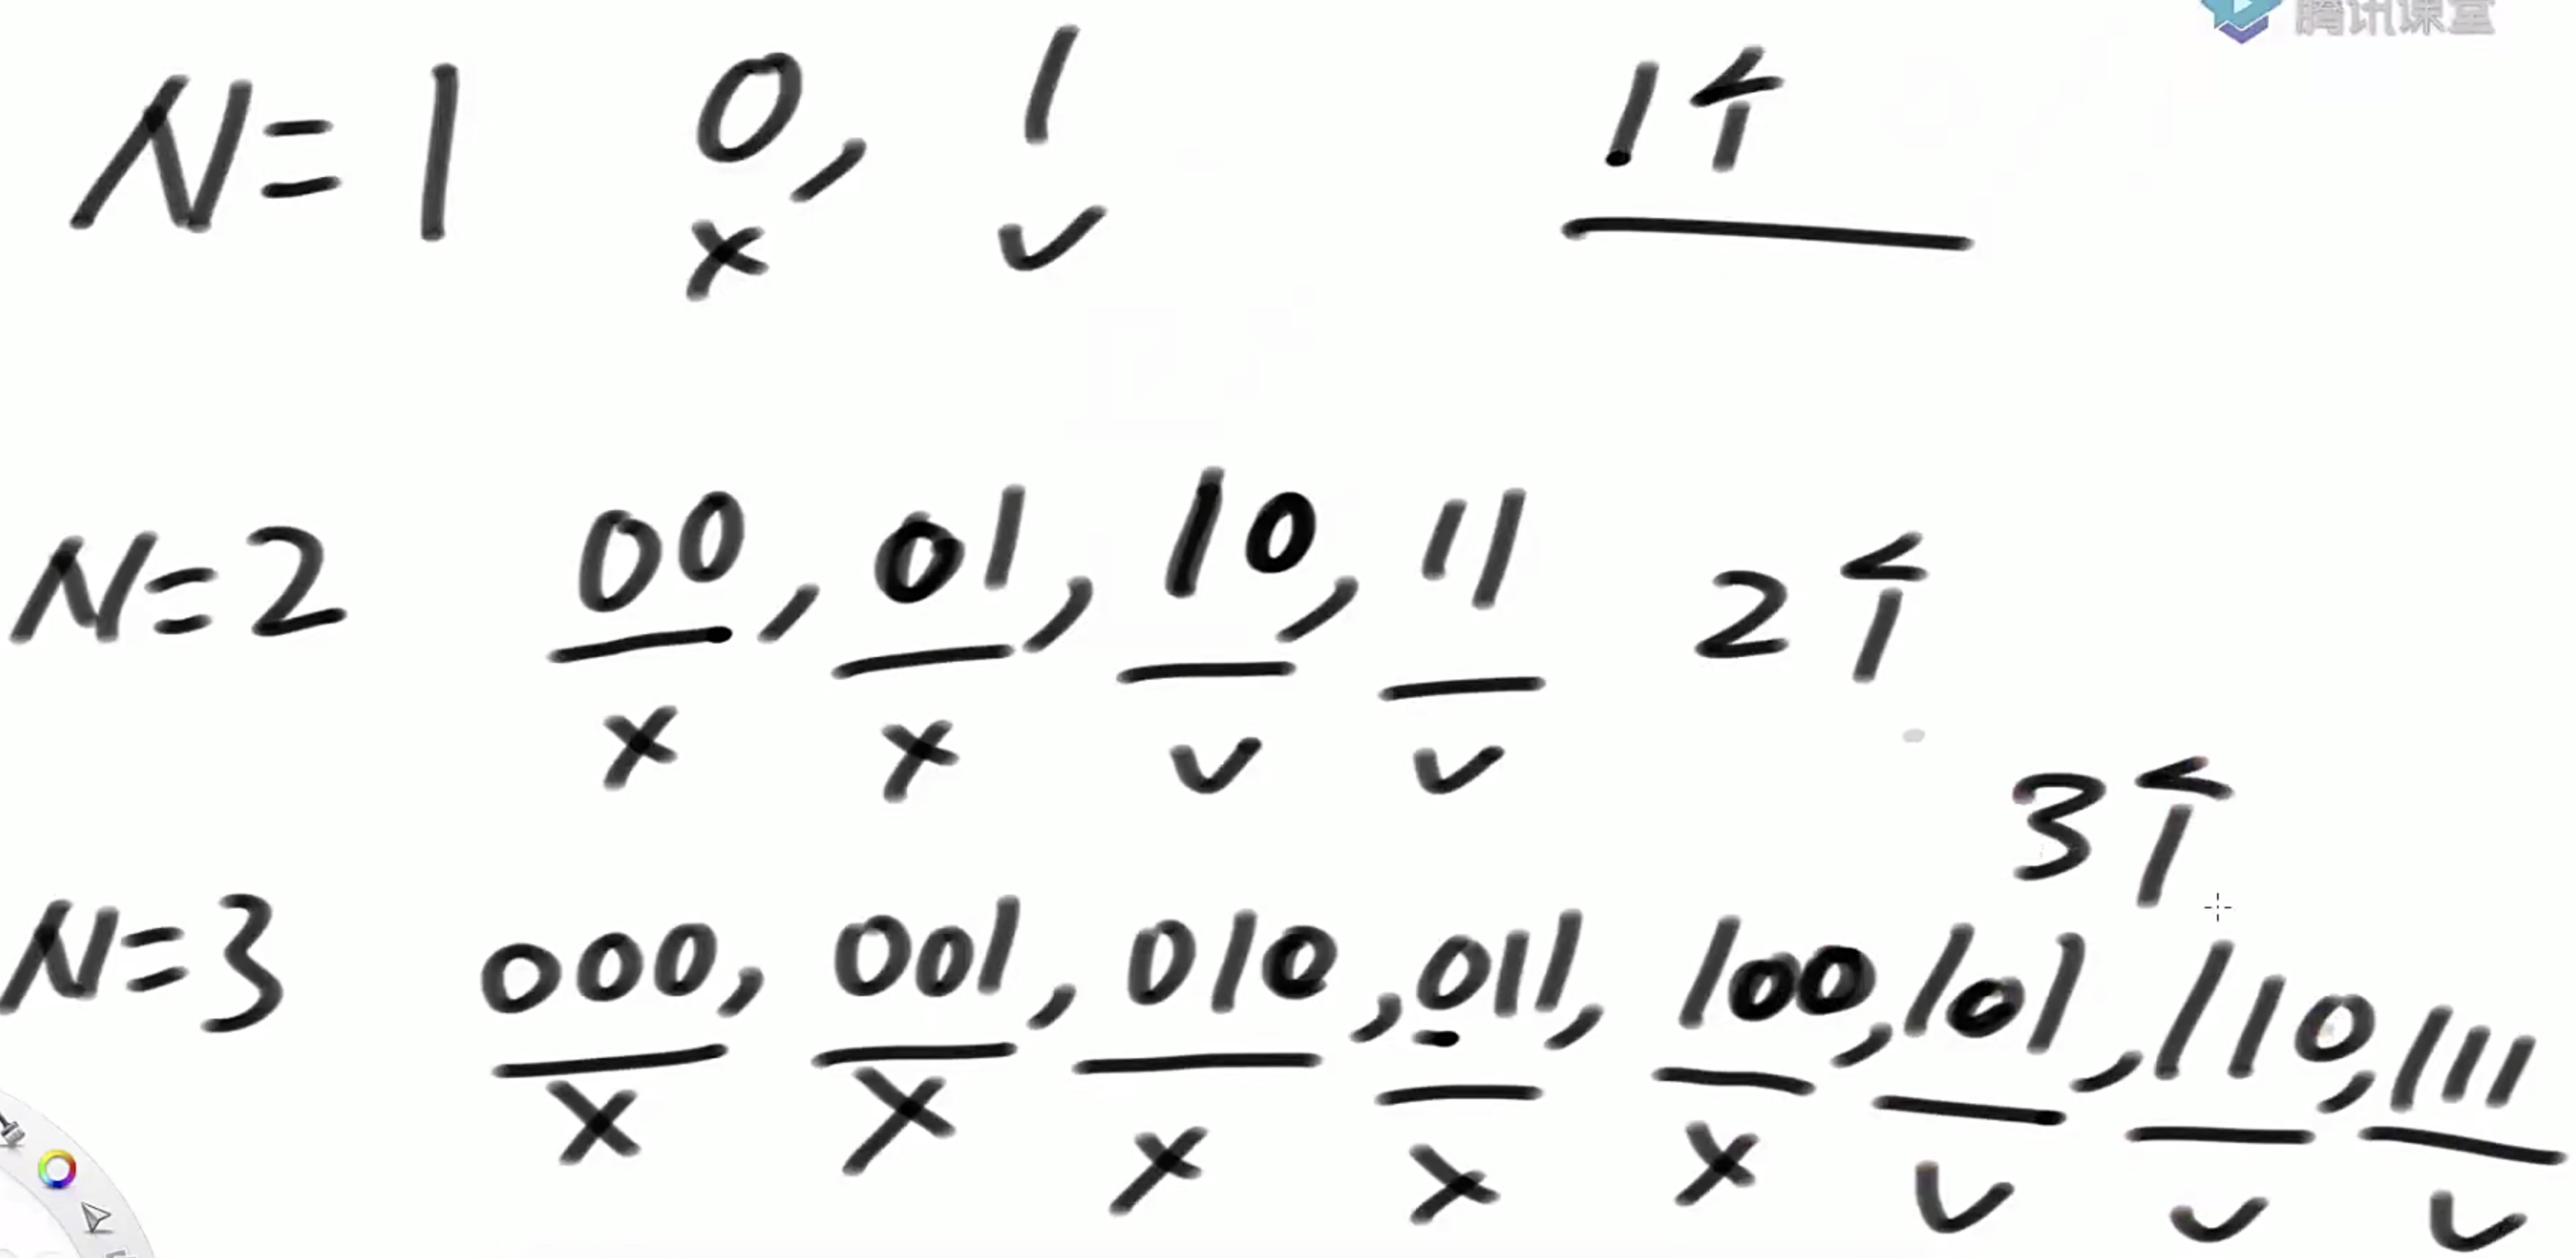 腾讯课堂
N=1 0, 1 1个
x ✓
N=2 00, 01, 10, 11 2个
x x ✓ ✓
3个
N=3 000, 001, 010, 011, 100, 101, 110, 111
x x x x x ✓ ✓ ✓